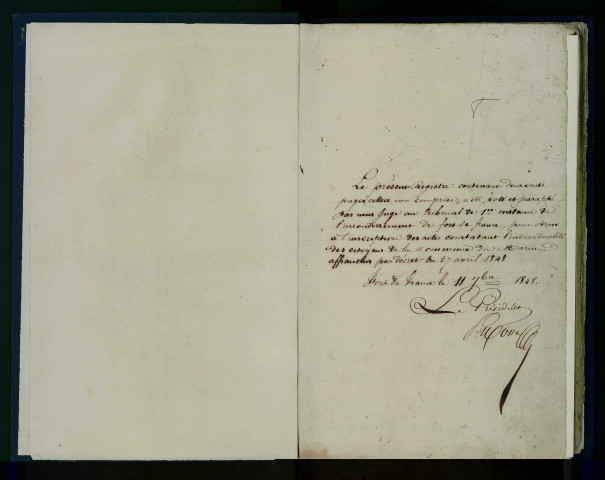 Le présent Registre contenant deux cents
pages celles non comprise, a été coté et paraphé
par nous Juge au Tribunal de 1ere instance de
l'arrondissement de fort de france pour servir
à l'inscription des actes constatant l'individualité
des citoyens de la Commune du Marin
affranchis par décret du 27 avril 1848
Fort de France le 11 7bre 1848.
Le Président